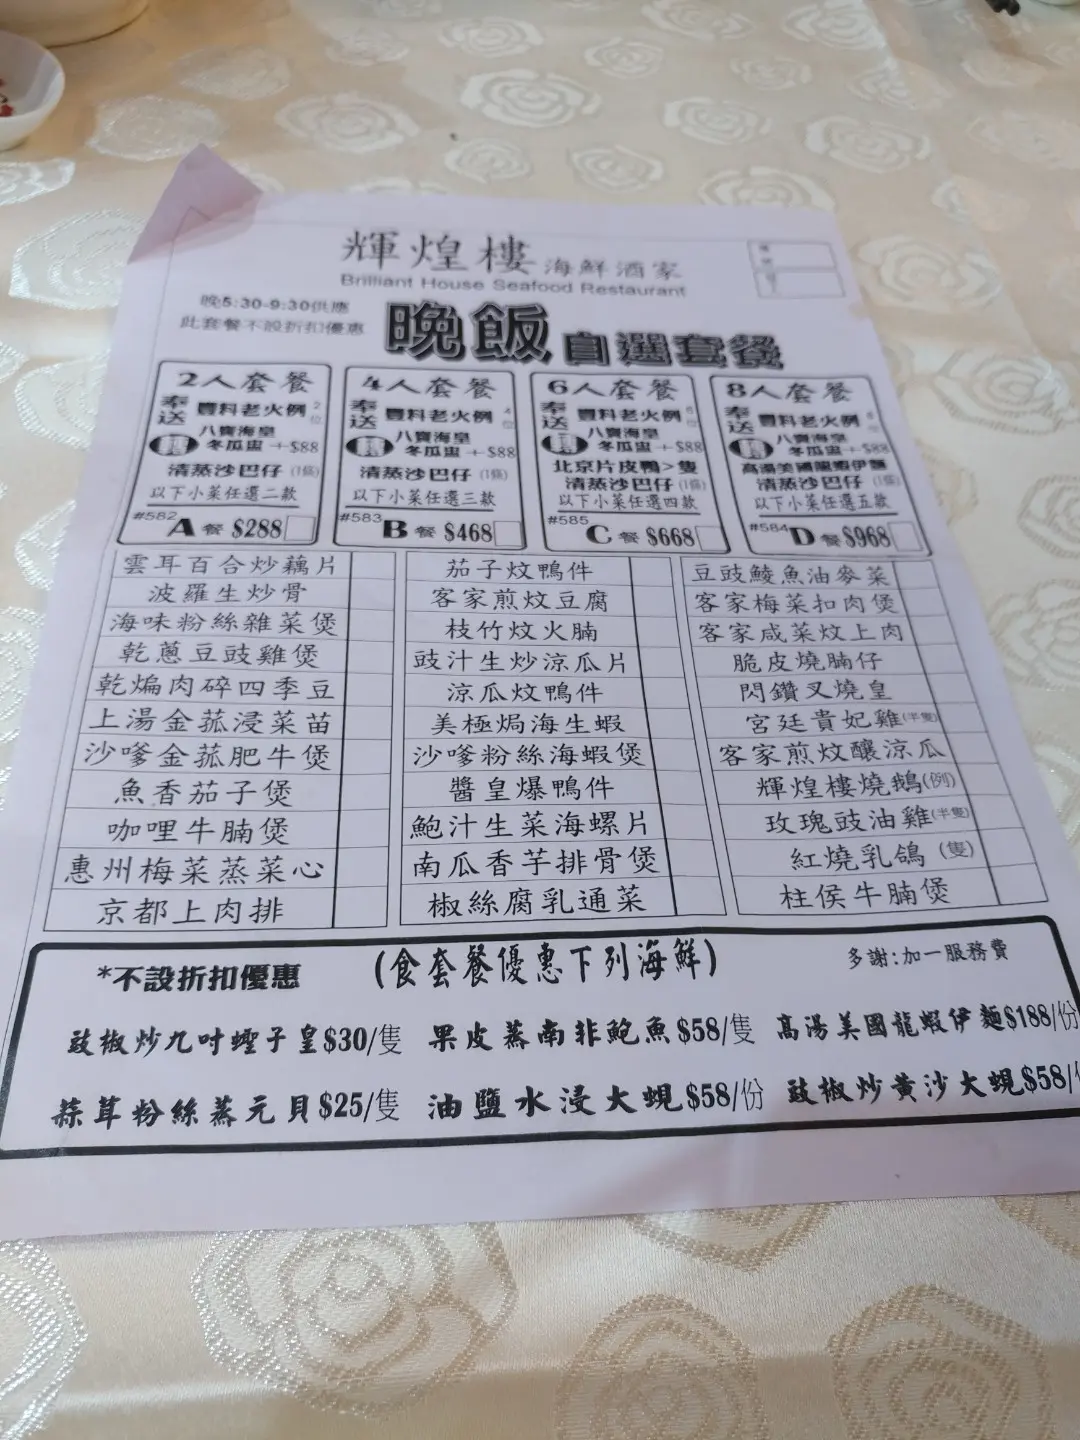 輝煌樓 海鮮酒家
Brilliant House Seafood Restaurant
晚5:30-9:30供應
此套餐不設折扣優惠
晚飯 自選套餐
2人套餐
奉送 豐料老火例 2位
八寶海皇
冬瓜盅 +$88
清蒸沙巴仔 (1條)
以下小菜任選二款
#582 A 餐 $288
4人套餐
奉送 豐料老火例 4位
八寶海皇
冬瓜盅 +$88
清蒸沙巴仔 (1條)
以下小菜任選三款
#583 B 餐 $468
6人套餐
奉送 豐料老火例 6位
八寶海皇
冬瓜盅 +$88
北京片皮鴨>隻
清蒸沙巴仔 (1條)
以下小菜任選四款
#585 C 餐 $668
8人套餐
奉送 豐料老火例
八寶海皇
冬瓜盅 +$88
高湯美國龍蝦伊麵
清蒸沙巴仔 (1條)
以下小菜任選五款
#584 D 餐 $968
雲耳百合炒藕片
波羅生炒骨
海味粉絲雜菜煲
乾蔥豆豉雞煲
乾煸肉碎四季豆
上湯金菰浸菜苗
沙嗲金菰肥牛煲
魚香茄子煲
咖哩牛腩煲
惠州梅菜蒸菜心
京都上肉排
茄子炆鴨件
客家煎炆豆腐
枝竹炆火腩
豉汁生炒涼瓜片
涼瓜炆鴨件
美極焗海生蝦
沙嗲粉絲海蝦煲
醬皇爆鴨件
鮑汁生菜海螺片
南瓜香芋排骨煲
椒絲腐乳通菜
豆豉鯪魚油麥菜
客家梅菜扣肉煲
客家咸菜炆上肉
脆皮燒腩仔
閃鑽叉燒皇
宮廷貴妃雞(半隻)
客家煎炆釀涼瓜
輝煌樓燒鵝(例)
玫瑰豉油雞(半隻)
紅燒乳鴿 (隻)
柱侯牛腩煲
*不設折扣優惠 (食套餐優惠下列海鮮) 多謝:加一服務費
豉椒炒九吋蟶子皇$30/隻 果皮蒸南非鮑魚$58/隻 高湯美國龍蝦伊麵$188/份
蒜茸粉絲蒸元貝$25/隻 油鹽水浸大蜆$58/份 豉椒炒黃沙大蜆$58/